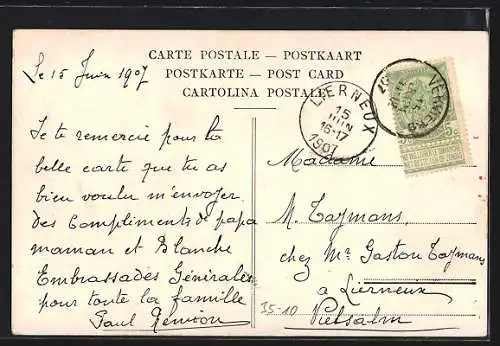 CARTE POSTALE — POSTKAART
POSTKARTE — POST CARD
CARTOLINA POSTALE
Le 15 Juin 1907
LIERNEUX
15
JUIN
16-17
1907
VERVIERS
5c
Je te remercie pour ta
belle carte que tu as
bien voulu m'envoyer
des Compliments de papa
maman et Blanche
Embrassades Générales
pour toute la famille
Paul
Madame
M. Taymans,
chez Mr Gaston Taymans
à Lierneux
Vielsalm
35-10